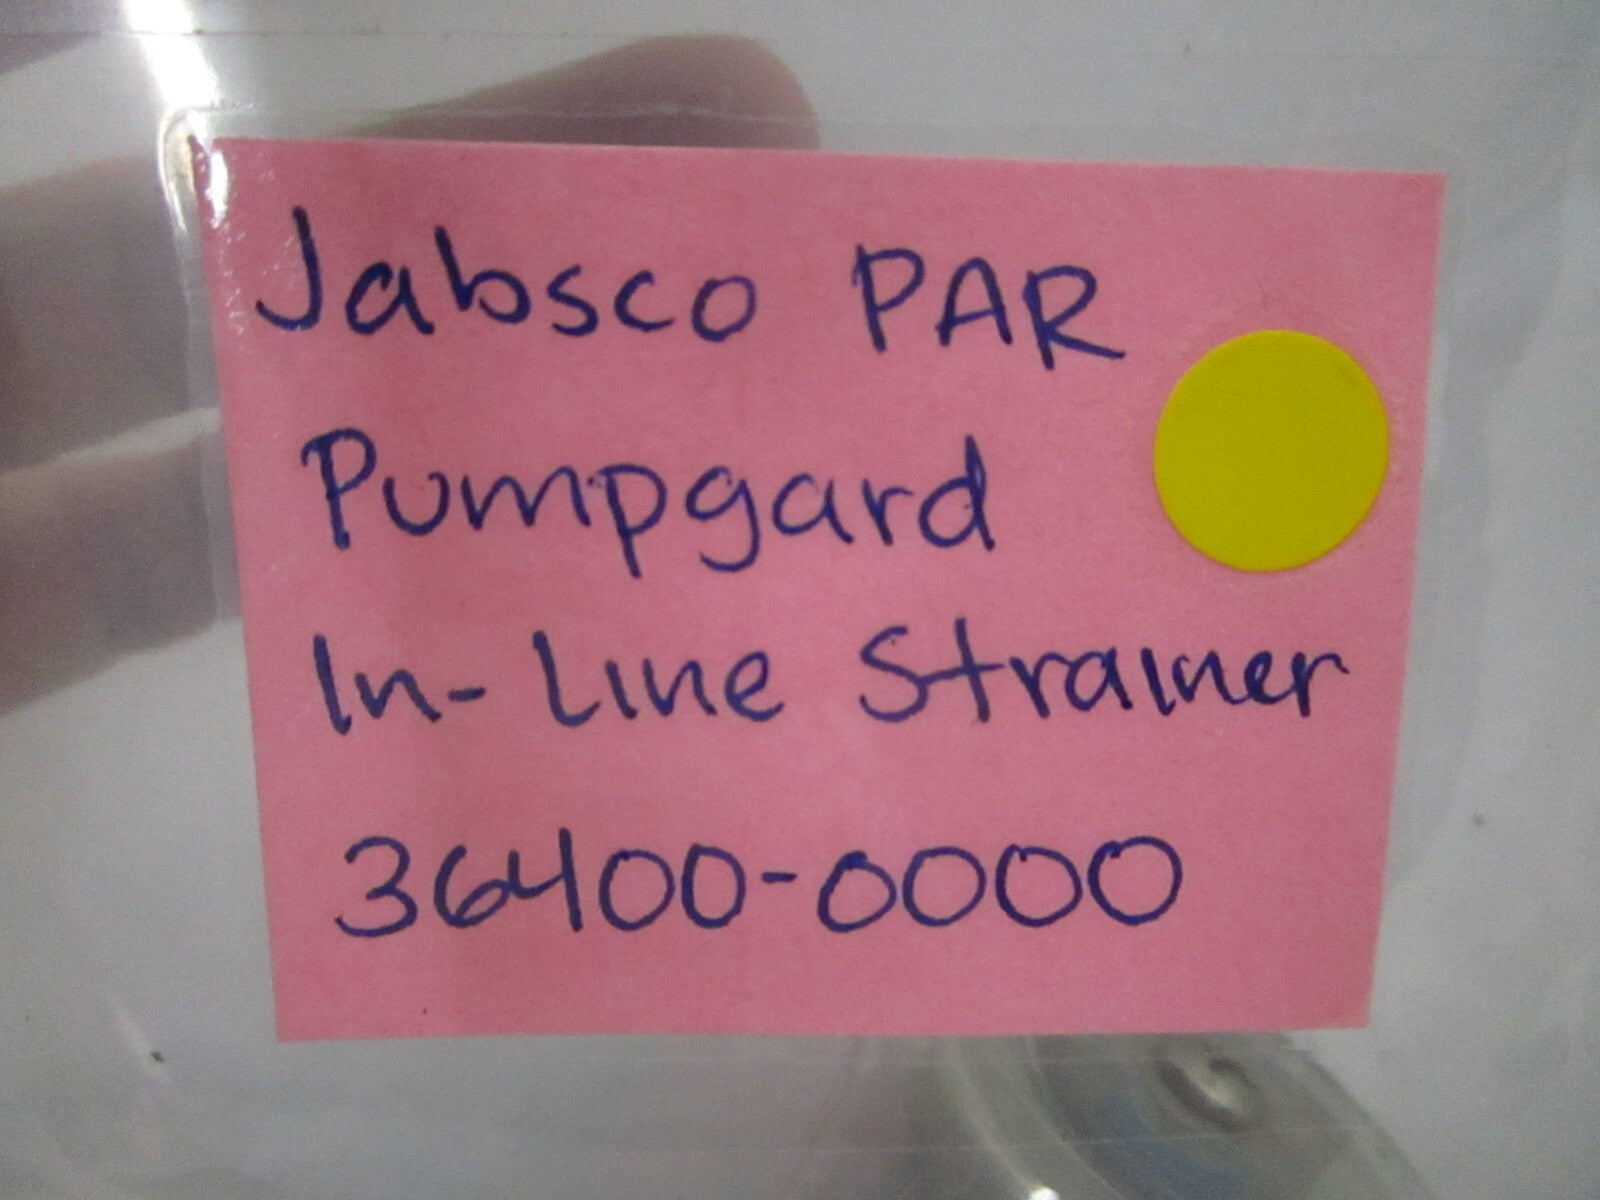 Jabsco PAR
Pumpgard
In-Line Strainer
36400-0000